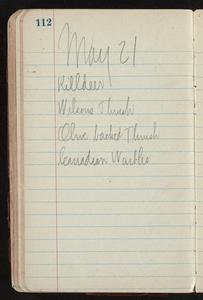 112
May 21
Killdeer
Wilsons Thrush
Olive backed Thrush
Canadian Warbler